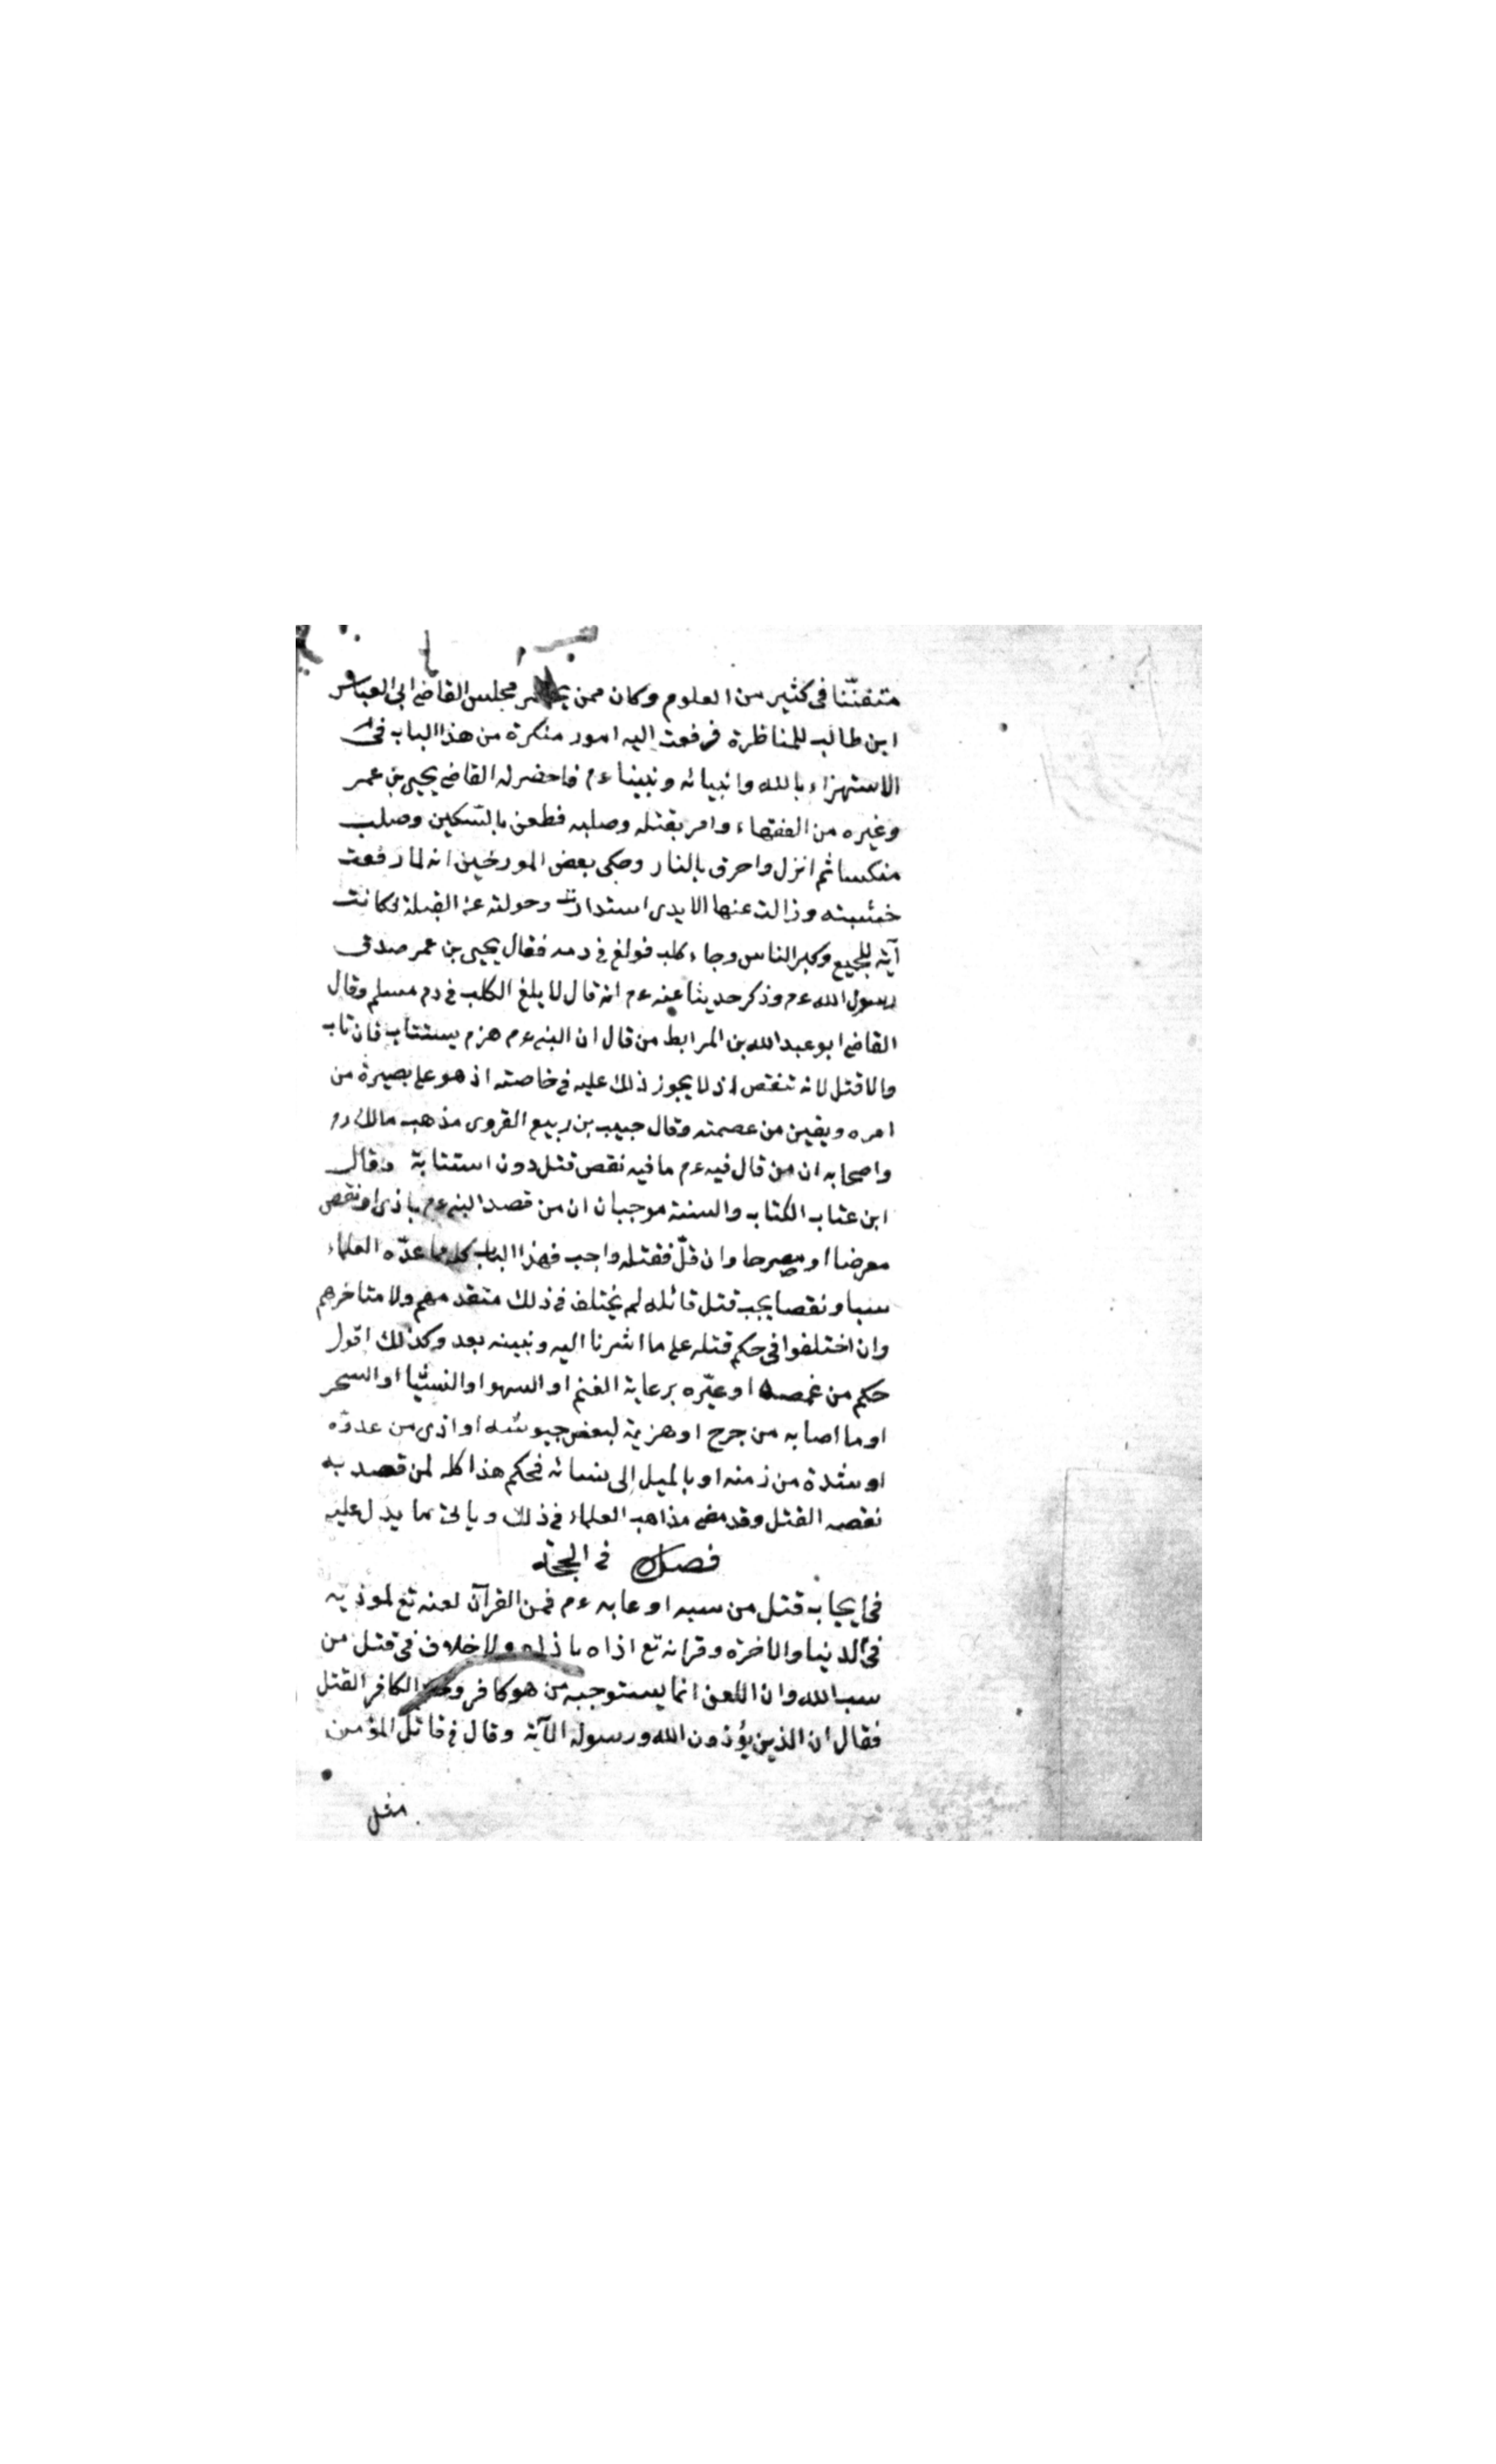 متفنّنا فى كثير من العلوم وكان ممن يحضر مجلس القاضى ابى العباس
ابن طالب للمناظرة فرفعت اليه امور منكرة من هذا الباب فى
الاستهزاء بالله وانبيائه ونبينا ءم فاحضر له القاضى يحيى بن عمر
وغيره من الفقهاء وامر بقتله وصلبه فطعن بالسّكين وصلب
منكسا ثم انزل واحرق بالنار وحكى بعض المورخين انه لما رفعت
خشبته وزالت عنها الايدى استدارت وحولته عن القبلة فكانت
آية للجميع وكبر الناس وجاء كلب فولغ فى دمه فقال يحيى بن عمر صدق
رسول الله ءم وذكر حديثا عنه ءم انه قال لا يلغ الكلب فى دم مسلم وقال
القاضى ابو عبد الله بن المرابط من قال ان النبى ءم هزم يستتاب فان تاب
والا قتل لانه تنقص اذ لا يجوز ذلك عليه فى خاصته اذ هو على بصيرة من
امره ويقين من عصمته وقال حبيب بن ربيع القروى مذهب مالك ره
واصحابه ان من قال فيه ءم ما فيه نقص قتل دون استتابة وقال
ابن عتاب الكتاب والسنة موجبان ان من قصد النبى ءم باذى او نقص
معرضا او مصرحا وان قلّ فقتله واجب فهذا الباب كله مما عدّه العلماء
سبا ونقصا يجب قتل قائله لم يختلف فى ذلك متقدمهم ولا متاخرهم
وان اختلفوا فى حكم قتله على ما اشرنا اليه ونبينه بعد وكذلك اقول
حكم من غمصه او عيّره برعاية الغنم او السهو او النسيا او السحر
او ما اصابه من جرح او هزيمة لبعض جيوشه او اذى من عدوّه
او شدة من زمنه او بالميل الى نسائه فحكم هذا كله لمن قصد به
نقصه القتل وقد مضى مذاهب العلماء فى ذلك وياتى مما يدل عليه
فصل فى الحجة
فى ايجاب قتل من سبه او عابه ءم فمن القرآن لعنه تع لموذيه
فى الدنيا والاخرة وقرانه تع اذاه باذاه ولا خلاف فى قتل من
سب الله وان اللعن انما يستوجبه من هو كافر وحكم الكافر القتل
فقال ان الذين يؤذون الله ورسوله الآية وقال فى قاتل المؤمن
مثل